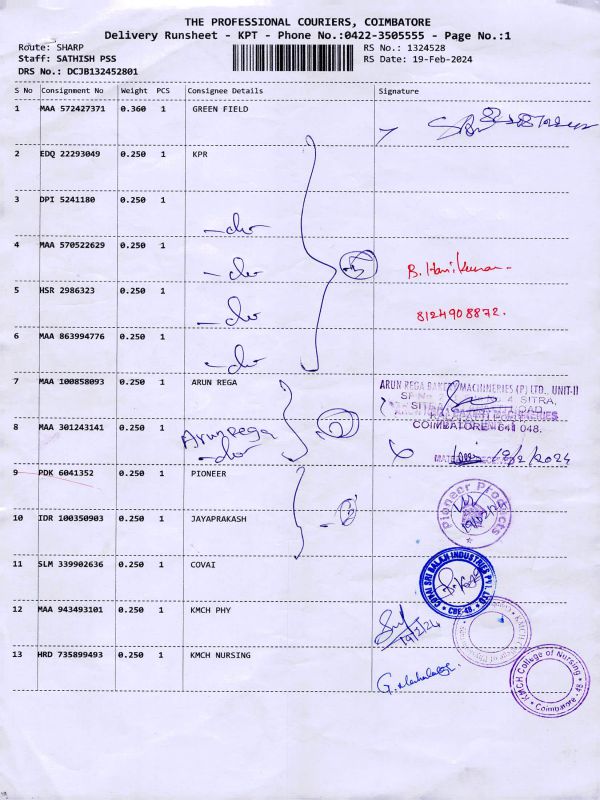 THE PROFESSIONAL COURIERS, COIMBATORE
Delivery Runsheet - KPT - Phone No.:0422-3505555 - Page No.:1
Route: SHARP
RS No.: 1324528
Staff: SATHISH PSS
RS Date: 19-Feb-2024
DRS No.: DCJB132452801
S No Consignment No Weight PCS Consignee Details Signature
1 MAA 572427371 0.360 1 GREEN FIELD
2 EDQ 22293049 0.250 1 KPR
3 DPI 5241180 0.250 1
4 MAA 570522629 0.250 1
B. Harikumar.
5 HSR 2986323 0.250 1
8124908872.
6 MAA 863994776 0.250 1
7 MAA 100858093 0.250 1 ARUN REGA
ARUN REGA BAKERY MACHINERIES (P) LTD., UNIT-II
COIMBATORE 641 048.
8 MAA 301243141 0.250 1
Arun Rega
19/2/2024
9 PDK 6041352 0.250 1 PIONEER
Pioneer Products
10 IDR 100350903 0.250 1 JAYAPRAKASH
11 SLM 339902636 0.250 1 COVAI
COVAI SRI BALAJI INDUSTRIES PVT. LTD
CBE-48.
12 MAA 943493101 0.250 1 KMCH PHY
19/2/24
13 HRD 735899493 0.250 1 KMCH NURSING
KMCH College of Nursing
Coimbatore - 48